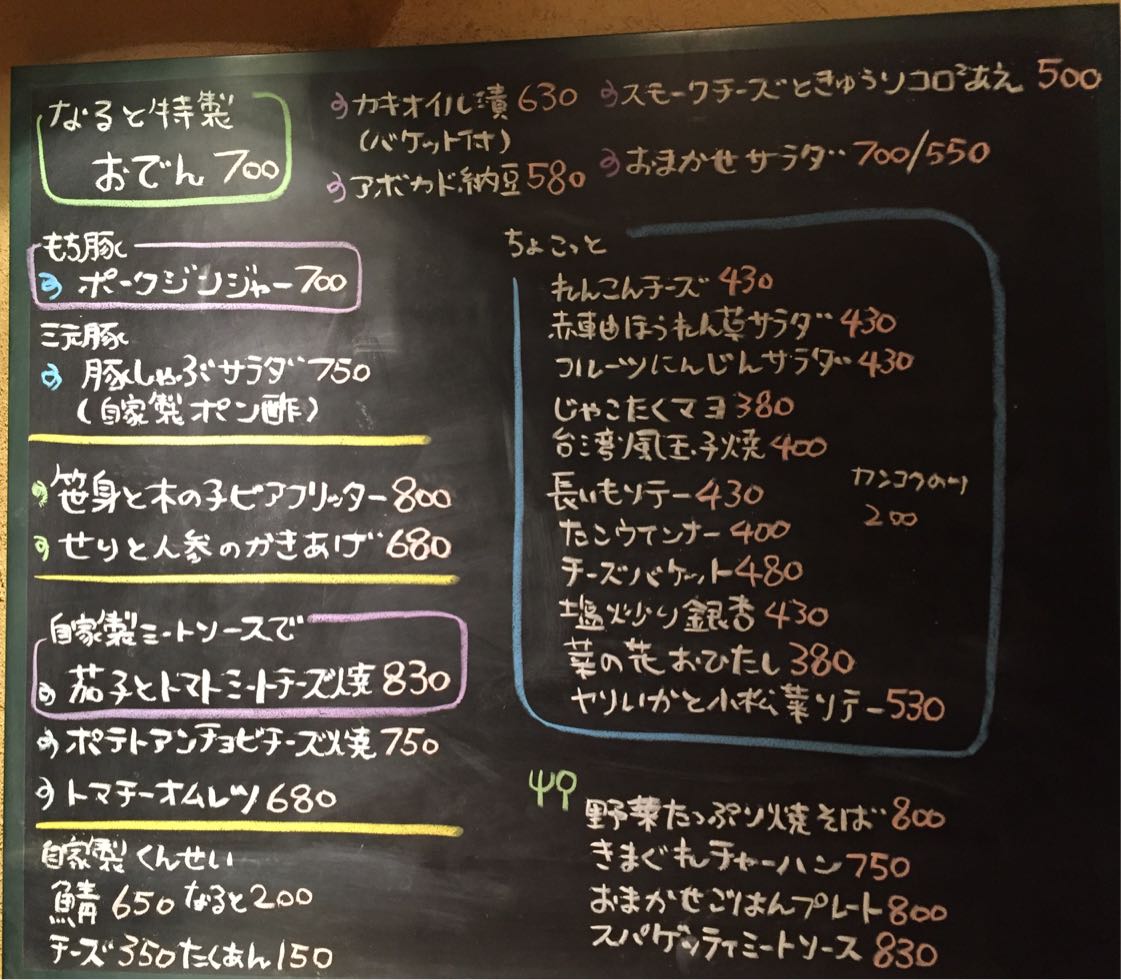 なると特製
おでん 700
カキオイル漬 630
(バケット付)
アボカド納豆 580
スモークチーズときゅうりコロコロあえ 500
おまかせサラダ 700/550
もち豚
ポークジンジャー 700
三元豚
豚しゃぶサラダ 750
(自家製ポン酢)
笹身と木の子ビアフリッター 800
せりと人参のかきあげ 680
自家製ミートソースで
茄子とトマトミートチーズ焼 830
ポテトアンチョビチーズ焼 750
トマチーオムレツ 680
自家製くんせい
鯖 650 なると 200
チーズ 350 たくあん 150
ちょこっと
れんこんチーズ 430
赤車曲ほうれん草サラダ 430
フルーツにんじんサラダ 430
じゃこたくマヨ 380
台湾風玉子焼 400
長いもソテー 430
たこウインナー 400
チーズバケット 480
塩炒り銀杏 430
菜の花おひたし 380
ヤリいかと小松菜ソテー 530
カンコウのり
200
野菜たっぷり焼そば 800
きまぐれチャーハン 750
おまかせごはんプレート 800
スパゲッティミートソース 830